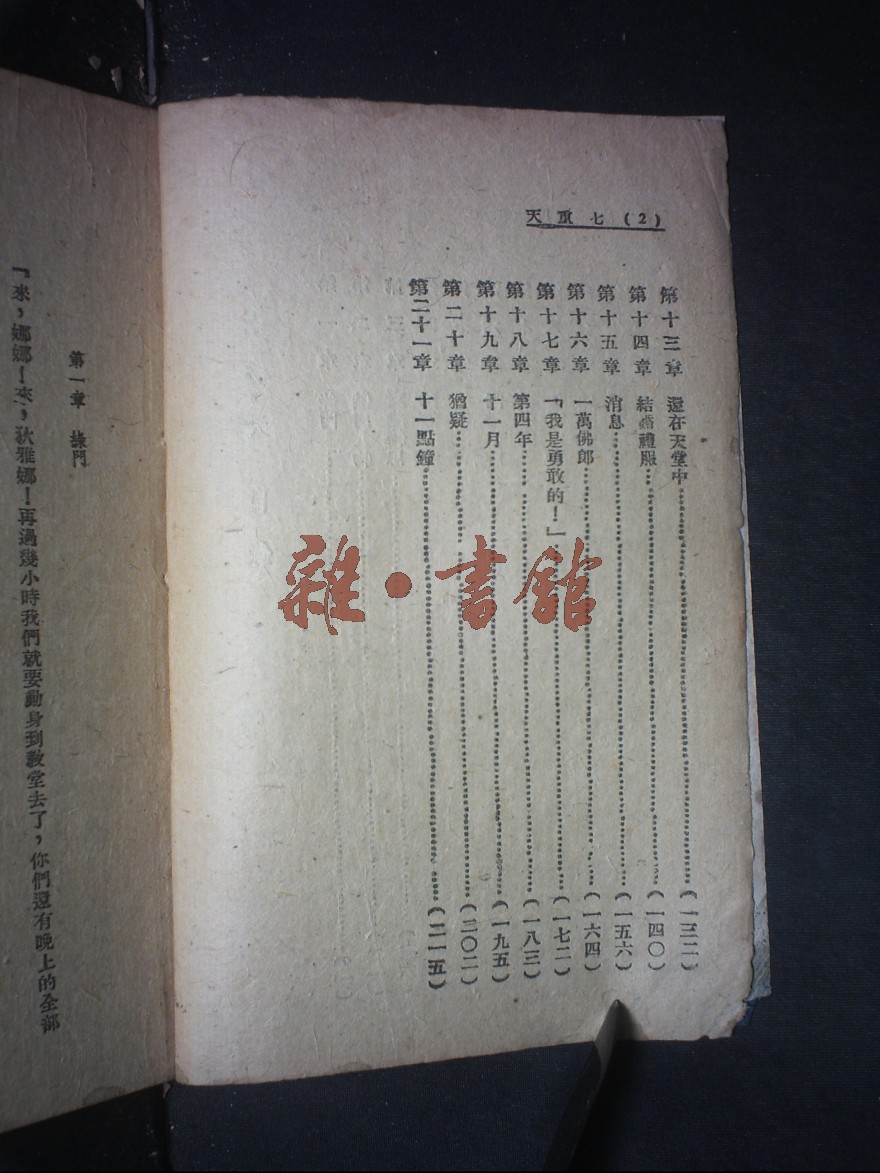 天重七 (2)
第十三章 還在天堂中……(一三二)
第十四章 結婚禮服……(一四〇)
第十五章 消息……(一五六)
第十六章 一萬佛郎……(一六四)
第十七章 「我是勇敢的！」……(一七二)
第十八章 第四年……(一八三)
第十九章 十一月……(一九五)
第二十章 猶疑……(二〇二)
第二十一章 十一點鐘……(二一五)
第一章 門
「來，娜娜！來，狄雅娜！再過幾小時我們就要動身到教堂去了，你們還有晚上的全部
雜·書館